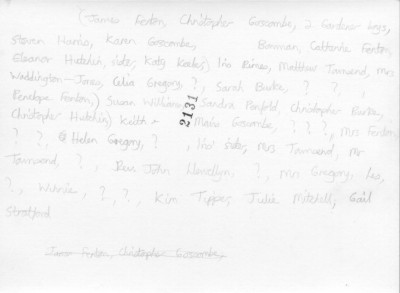 (James Fenton, Christopher Goscombe, 2 Gardner boys,
Steven Harris, Karen Goscombe, Bowman, Catherine Fenton,
Eleanor Hutchin, Katy Ina Matthew Townsend, Mrs
Waddington-Jones, Celia Gregory, ?, Sarah Burke, ? ?
Penelope Fenton,) Susan Williams, Sandra Penfold, Christopher Burke,
Christopher Hutchin) Keith Goscombe, ? ? ?, Mrs Fenton,
? ? Helen Gregory, ? , Mrs Townsend, Mr
Townsend, ? , Rev. John Llewellyn, ?, Mrs Gregory,
?, Winnie, ?, ?, Kim Tipper, Julie Mitchell, Gail
Stratford
James Fenton, Christopher Goscombe,
2131